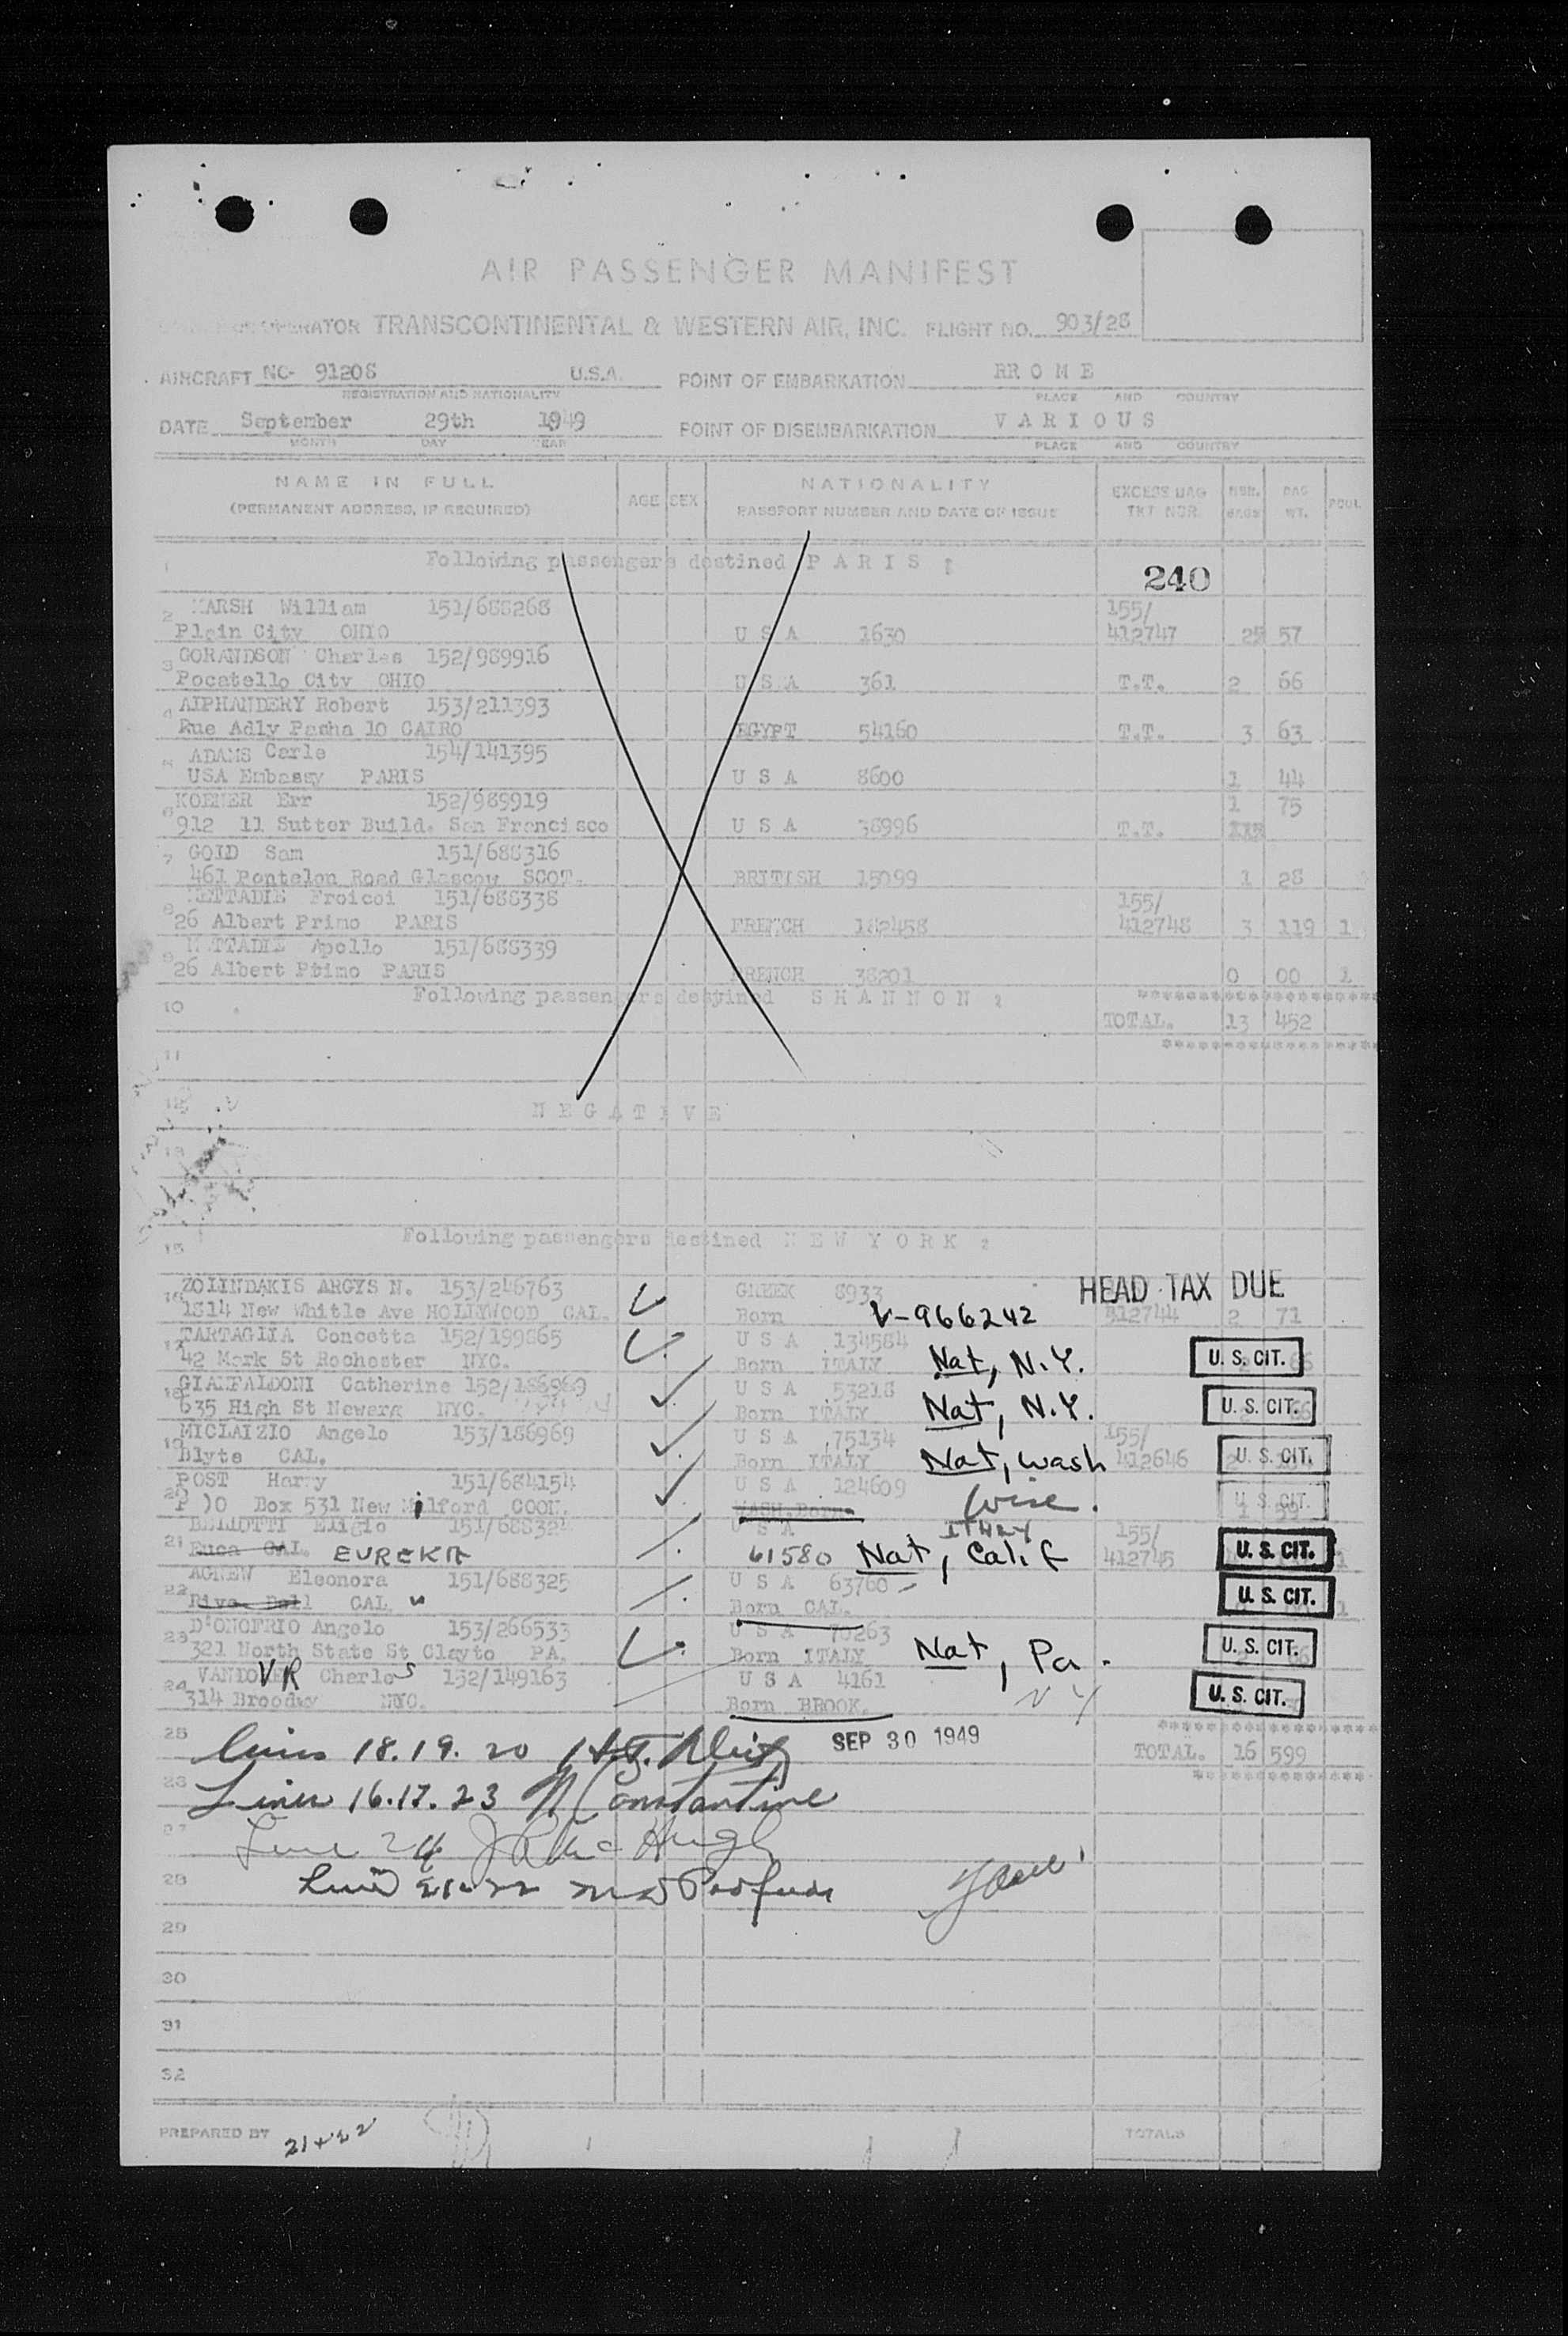 AIR PASSENGER MANIFEST
OPERATOR TRANSCONTINENTAL & WESTERN AIR, INC. FLIGHT NO. 903/28
AIRCRAFT NC- 91208 U.S.A. POINT OF EMBARKATION RR O M E
REGISTRATION AND NATIONALITY PLACE AND COUNTRY
DATE September 29th 1949 POINT OF DISEMBARKATION V A R I O U S
MONTH DAY YEAR PLACE AND COUNTRY
NAME IN FULL NATIONALITY
(PERMANENT ADDRESS, IF REQUIRED) AGE SEX PASSPORT NUMBER AND DATE OF ISSUE EXCESS BAG TKT NBR. NBR. BAGS BAG WT. POOL
1 Following passengers destined P A R I S :
240
2 MARSH William 151/688268 155/
Plain City OHIO U S A 1630 412747 25 57
3 GORANDSON Charles 152/989916
Pocatello City OHIO U S A 361 T.T. 2 66
4 AIPHANDERY Robert 153/211393
Rue Adly Pasha 10 CAIRO EGYPT 54160 T.T. 3 63
ADAMS Carle 154/141395
USA Embassy PARIS U S A 8600 1 44
6 KOENER Err 152/989919 1 75
912 11 Sutter Build. San Francisco U S A 38996 T.T.
7 GOLD Sam 151/688316
461 Pentelon Road Glascow SCOT. BRITISH 15099 1 28
8 Froicoi 151/688338 155/
26 Albert Primo PARIS FRENCH 182458 412748 3 119 1
9 Apollo 151/688339
26 Albert Ptimo PARIS FRENCH 38201 0 00 1
Following passengers destined S H A N N O N :
10 TOTAL. 13 452
11
12 N E G A T I V E
13
15 Following passengers destined N E W Y O R K :
16 ZOLINDAKIS ARGYS N. 153/246763 GREEK 8933 HEAD TAX DUE
1814 New Whitle Ave HOLLYWOOD CAL. Born V-966242 B12744 2 71
17 TARTAGLIA Concetta 152/199865 U S A 134584
42 Mark St Rochester NYC. Born ITALY Nat, N.Y. U. S. CIT.
18 GIANFALDONI Catherine 152/186969 U S A 53218
635 High St Newark NYC. Born ITALY Nat, N.Y. U. S. CIT.
19 MICLAIZIO Angelo 153/186969 U S A 75134 155/
Blyte CAL. Born ITALY Nat, Wash 412646 U. S. CIT.
20 POST Harry 151/684154 U S A 124609
P )O Box 531 New Milford COON. WASH.Born Wisc. U. S. CIT.
BELLOTTI Eligio 151/688324 U S A ITALY 155/
21 Euca CAL. EUREKA 61580 Nat, Calif 412745 U. S. CIT. 1
AGNEW Eleonora 151/688325 U S A 63760
22 CAL. " Born CAL. U. S. CIT. 1
23 D'ONOFRIO Angelo 153/266533 U S A 70263
321 North State St Clayto PA. Born ITALY Nat, Pa. U. S. CIT.
24 VR Charles 152/149163 U S A 4161
314 Broodwy NYC. Born BROOK. NY U. S. CIT.
25 Lines 18.19.20 SEP 30 1949 TOTAL. 16 599
Lines 16.17.23 N Constantine
27 Line 24
28
29
30
31
32
PREPARED BY 21+22 TOTALS